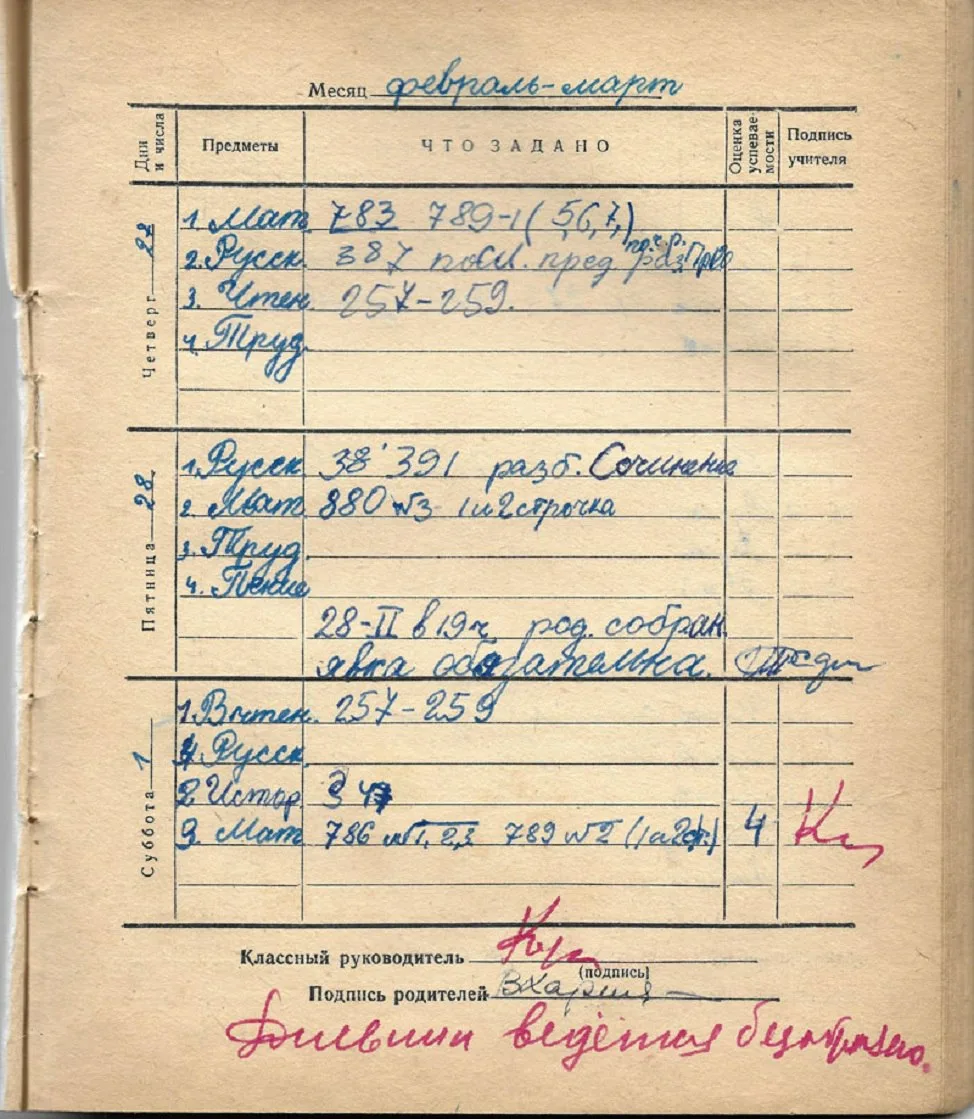 Месяц февраль-март
Дни и числа Предметы ЧТО ЗАДАНО Оценка успевае-мости Подпись учителя
Четверг 27
1. Мат 783 789-1 (5,6,7,)
2. Русск. 387 пред раз.
3. Чтен. 257-259.
4. Труд.
Пятница 28
1. Русск 391 разб. Сочинение
2. Мат 880 №3 1 и 2 строчка
3. Труд.
4. Пение
28-II в 19 ч. род. собран.
явка обязательна.
Суббота 1
1. Вн чтен. 257-259
4. Русск.
2. Истор § 47
3. Мат 786 №1, 2,3 789 №2 (1 и 2 ст.) 4
Классный руководитель
(подпись)
Подпись родителей
Дневник ведётся безобразно.